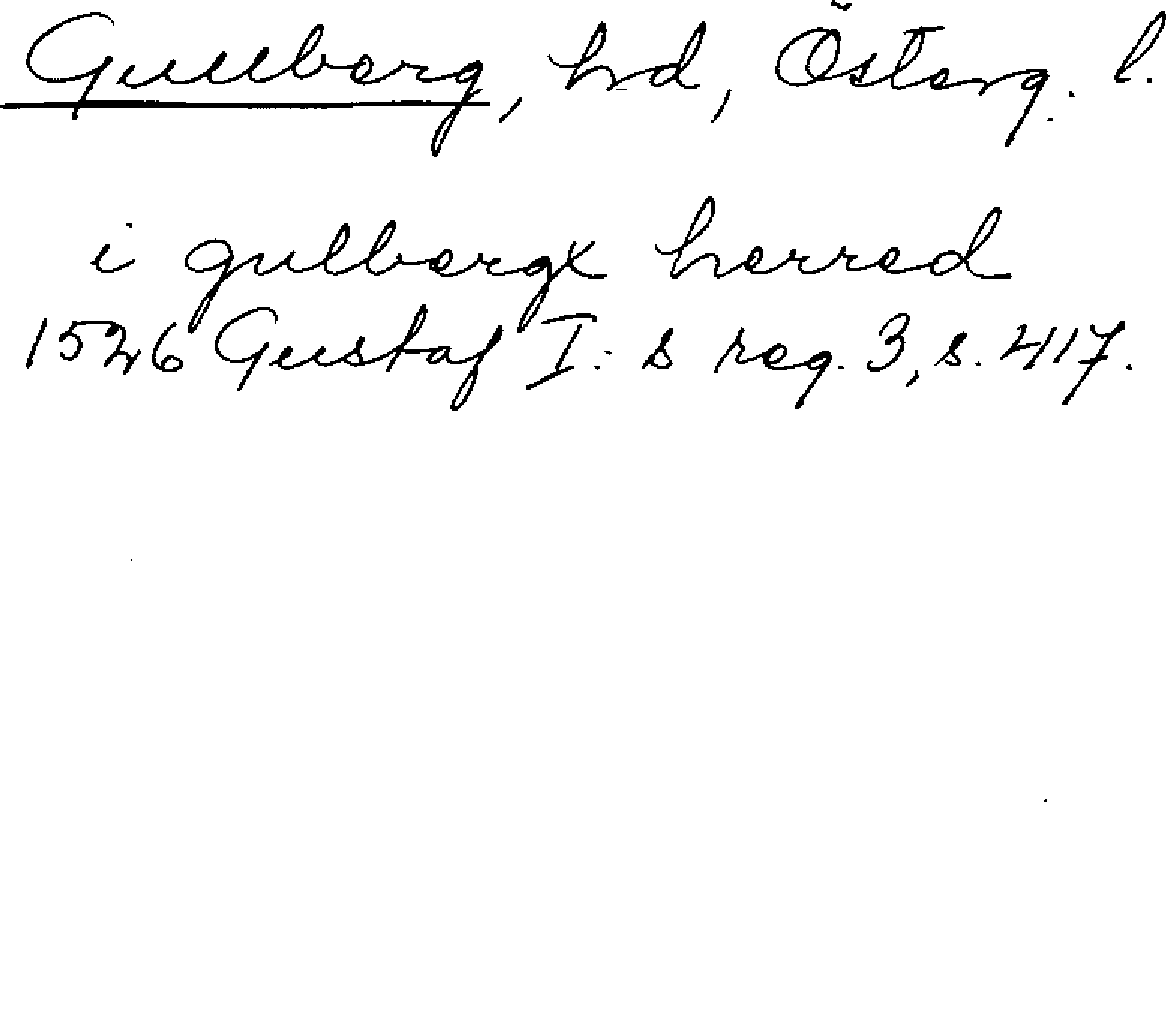 Gullberg, hd, Österg. l.
i gulbergx herred
1526 Gustaf I:s reg. 3, s. 417.